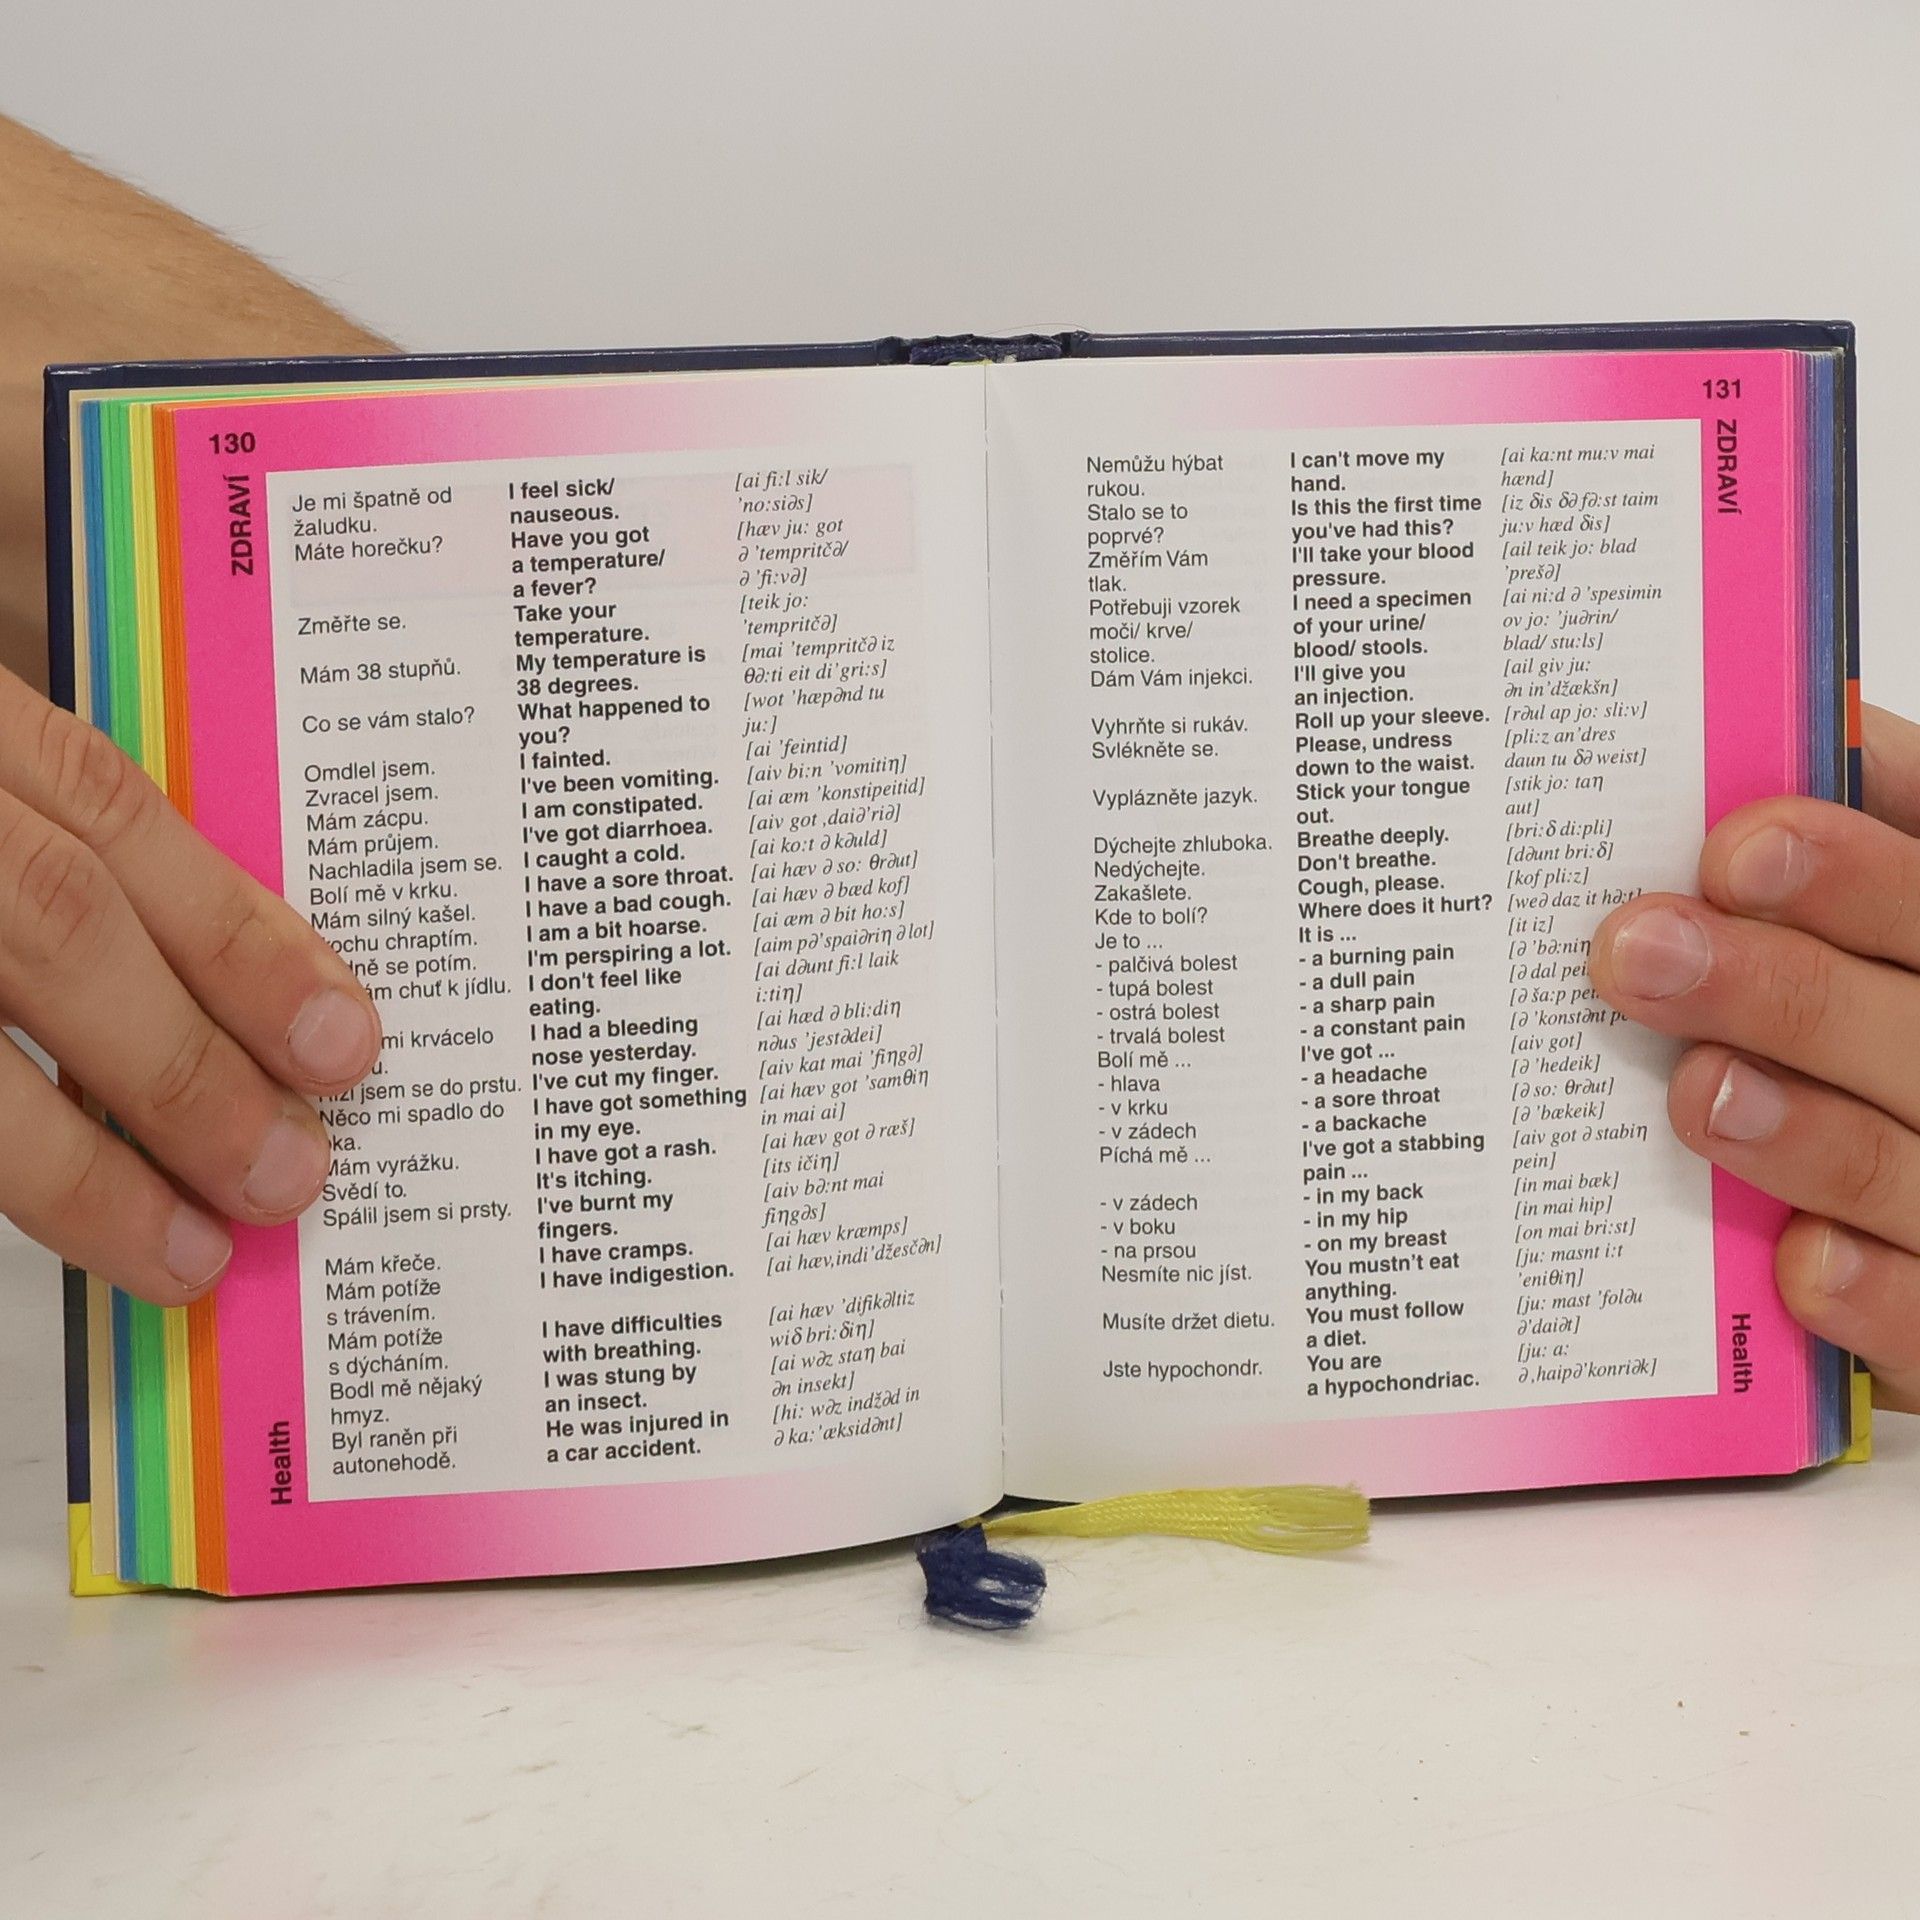 130
ZDRAVÍ
Je mi špatně od
žaludku.
Máte horečku?
Změřte se.
Mám 38 stupňů.
Co se vám stalo?
Omdlel jsem.
Zvracel jsem.
Mám zácpu.
Mám průjem.
Nachladila jsem se.
Bolí mě v krku.
Mám silný kašel.
chraptím.
se potím.
chuť k jídlu.
mi krvácelo
jsem se do prstu.
Něco mi spadlo do
Mám vyrážku.
Svědí to.
Spálil jsem si prsty.
Mám křeče.
Mám potíže
s trávením.
Mám potíže
s dýcháním.
Bodl mě nějaký
hmyz.
Byl raněn při
autonehodě.
I feel sick/
nauseous.
Have you got
a temperature/
a fever?
Take your
temperature.
My temperature is
38 degrees.
What happened to
you?
I fainted.
I've been vomiting.
I am constipated.
I've got diarrhoea.
I caught a cold.
I have a sore throat.
I have a bad cough.
I am a bit hoarse.
I'm perspiring a lot.
I don't feel like
eating.
I had a bleeding
nose yesterday.
I've cut my finger.
I have got something
in my eye.
I have got a rash.
It's itching.
I've burnt my
fingers.
I have cramps.
I have indigestion.
I have difficulties
with breathing.
I was stung by
an insect.
He was injured in
a car accident.
[ai fi:l sik/
'no:siəs]
[hæv ju: got
ə 'tempritčə/
ə 'fi:və]
[teik jo:
'tempritčə]
[mai 'tempritčə iz
θə:ti eit di'gri:s]
[wot 'hæpənd tu
ju:]
[ai 'feintid]
[aiv bi:n 'vomitiŋ]
[ai æm 'konstipeitid]
[aiv got ,daiə'riə]
[ai ko:t ə kəuld]
[ai hæv ə so: θrəut]
[ai hæv ə bæd kof]
[ai æm ə bit ho:s]
[aim pə'spaiəriŋ ə lot]
[ai dəunt fi:l laik
i:tiŋ]
[ai hæd ə bli:diŋ
nəus 'jestədei]
[aiv kat mai 'fiŋgə]
[ai hæv got 'samθiŋ
in mai ai]
[ai hæv got ə ræš]
[its ičiŋ]
[aiv bə:nt mai
fiŋgəs]
[ai hæv kræmps]
[ai hæv,indi'džesčən]
[ai hæv 'difikəltiz
wiδ bri:δiŋ]
[ai wəz staŋ bai
ən insekt]
[hi: wəz indžəd in
ə ka:'æksidənt]
Health
131
ZDRAVÍ
Nemůžu hýbat
rukou.
Stalo se to
poprvé?
Změřím Vám
tlak.
Potřebuji vzorek
moči/ krve/
stolice.
Dám Vám injekci.
Vyhrňte si rukáv.
Svlékněte se.
Vyplázněte jazyk.
Dýchejte zhluboka.
Nedýchejte.
Zakašlete.
Kde to bolí?
Je to ...
- palčivá bolest
- tupá bolest
- ostrá bolest
- trvalá bolest
Bolí mě ...
- hlava
- v krku
- v zádech
Píchá mě ...
- v zádech
- v boku
- na prsou
Nesmíte nic jíst.
Musíte držet dietu.
Jste hypochondr.
I can't move my
hand.
Is this the first time
you've had this?
I'll take your blood
pressure.
I need a specimen
of your urine/
blood/ stools.
I'll give you
an injection.
Roll up your sleeve.
Please, undress
down to the waist.
Stick your tongue
out.
Breathe deeply.
Don't breathe.
Cough, please.
Where does it hurt?
It is ...
- a burning pain
- a dull pain
- a sharp pain
- a constant pain
I've got ...
- a headache
- a sore throat
- a backache
I've got a stabbing
pain ...
- in my back
- in my hip
- on my breast
You mustn't eat
anything.
You must follow
a diet.
You are
a hypochondriac.
[ai ka:nt mu:v mai
hænd]
[iz δis δə fə:st taim
ju:v hæd δis]
[ail teik jo: blad
'prešə]
[ai ni:d ə 'spesimin
ov jo: 'juərin/
blad/ stu:ls]
[ail giv ju:
ən in'džækšn]
[rəul ap jo: sli:v]
[pli:z an'dres
daun tu δə weist]
[stik jo: taŋ
aut]
[bri:δ di:pli]
[dəunt bri:δ]
[kof pli:z]
[weə daz it hə:t]
[it iz]
[ə 'bə:niŋ
[ə dal
[ə ša:p
[ə 'konstənt
[aiv got]
[ə 'hedeik]
[ə so: θrəut]
[ə 'bækeik]
[aiv got ə stabiŋ
pein]
[in mai bæk]
[in mai hip]
[on mai bri:st]
[ju: masnt i:t
'eniθiŋ]
[ju: mast 'foləu
ə'daiət]
[ju: a:
ə ,haipə'konriək]
Health